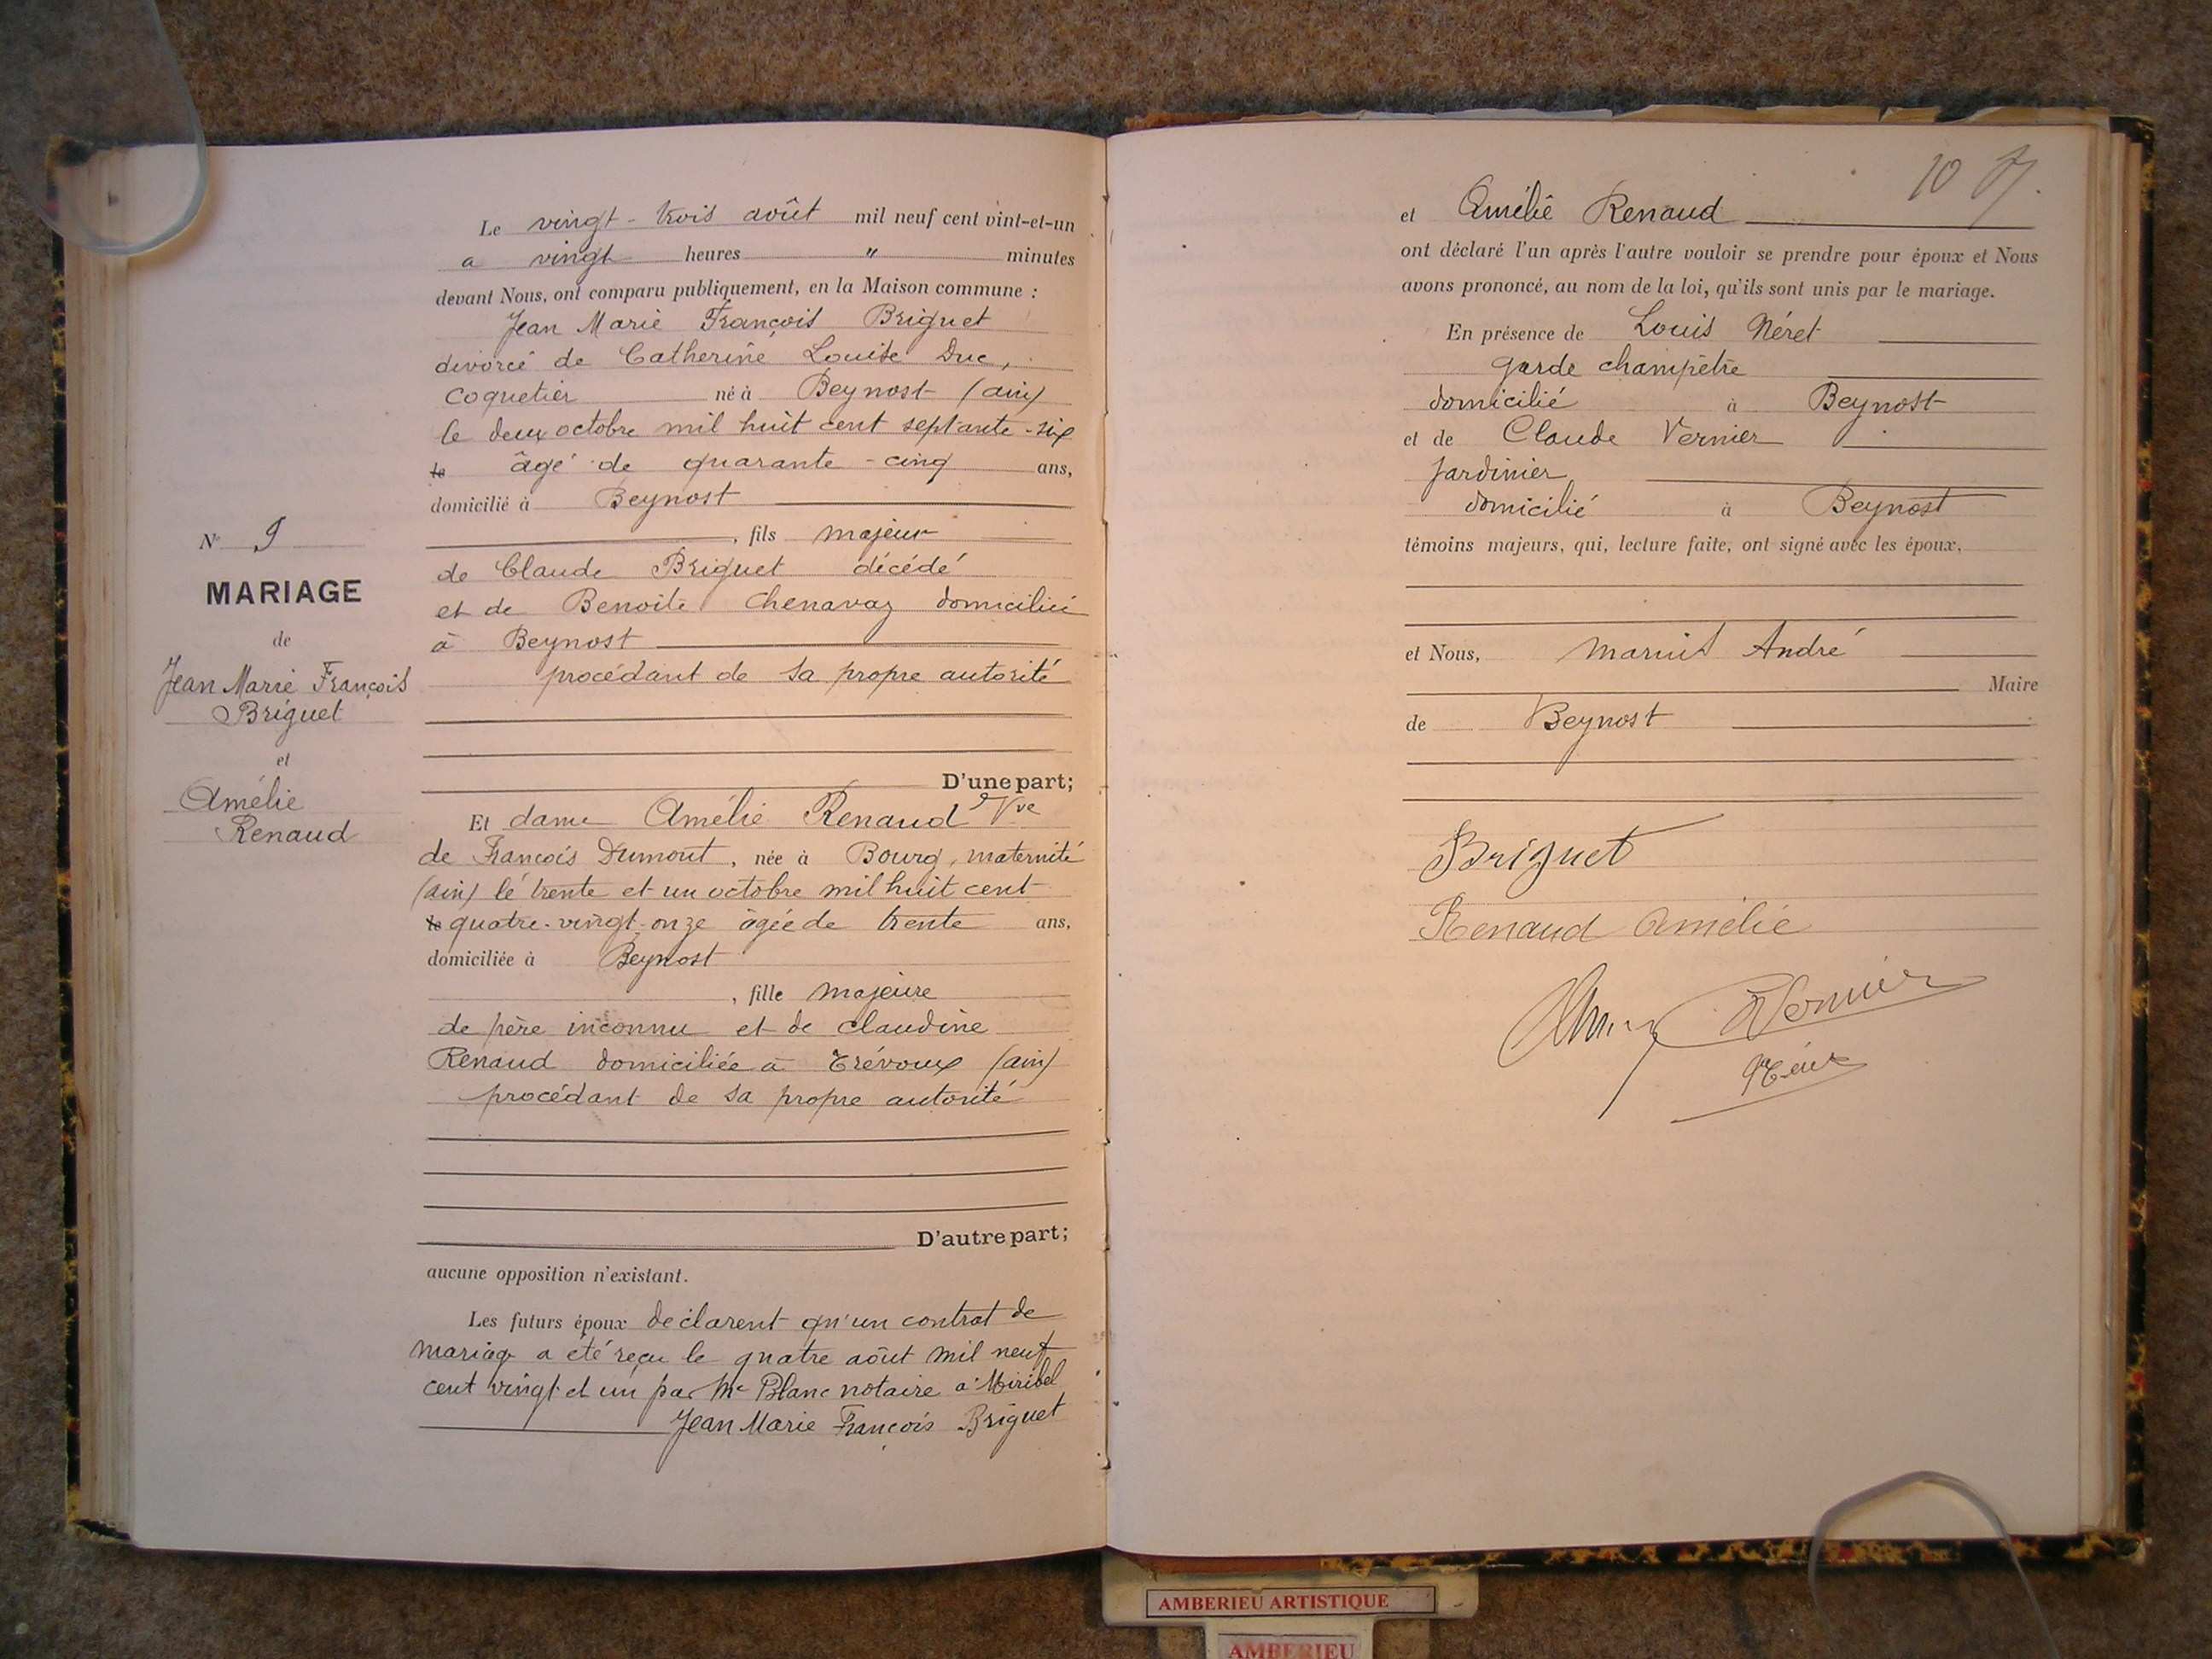 Le vingt-trois août mil neuf cent vint-et-un
a vingt heures " minutes
devant Nous, ont comparu publiquement, en la Maison commune :
Jean Marie François Briguet
divorcé de Catherine Louise Duc,
coquetier né à Beynost (ain)
le deux octobre mil huit cent septante-six
le âgé de quarante-cinq ans,
domicilié à Beynost
, fils majeur
de Claude Briguet décédé
et de Benoite Chenavaz domiciliée
à Beynost
procédant de sa propre autorité
D'une part;
Et dame Amélie Renaud Vve
de François Dumont, née à Bourg, maternité
(ain) le trente et un octobre mil huit cent
le quatre-vingt-onze âgée de trente ans,
domiciliée à Beynost
, fille majeure
de père inconnu et de claudine
Renaud domiciliée à Trévoux (ain)
procédant de sa propre autorité
D'autre part;
aucune opposition n'existant.
Les futurs époux declarent qu'un contrat de
mariage a été reçu le quatre août mil neuf
cent vingt et un par Me Blanc notaire a Miribel
Jean Marie François Briguet
No 9
MARIAGE
de
Jean Marie François
Briguet
et
Amélie
Renaud
10
et Amélie Renaud
ont déclaré l'un après l'autre vouloir se prendre pour époux et Nous
avons prononcé, au nom de la loi, qu'ils sont unis par le mariage.
En présence de Louis Néret
garde champêtre
domicilié à Beynost
et de Claude Vernier
Jardinier
domicilié à Beynost
témoins majeurs, qui, lecture faite, ont signé avec les époux,
et Nous, André
Maire
de Beynost
Briguet
Renaud Amélie
Vernier
AMBERIEU ARTISTIQUE
AMBERIEU